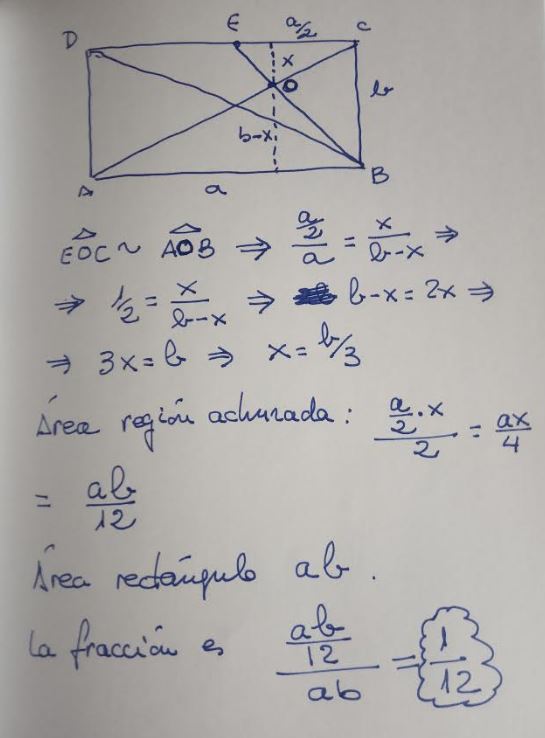 D E a/2 C
x
O b
b-x
A a B
EOC ~ AOB ⇒ (a/2)/a = x/(b-x) ⇒
⇒ 1/2 = x/(b-x) ⇒ b-x = 2x ⇒
⇒ 3x = b ⇒ x = b/3
Área región achurada: (a/2 · x)/2 = ax/4
= ab/12
Área rectángulo ab.
La fracción es (ab/12)/ab = 1/12